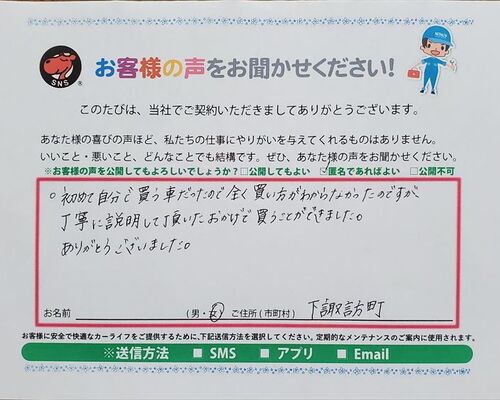 SNS ®
お客様の声をお聞かせください!
このたびは、当社でご契約いただきましてありがとうございます。
あなた様の喜びの声ほど、私たちの仕事にやりがいを与えてくれるものはありません。
いいこと・悪いこと、どんなことでも結構です。ぜひ、あなた様の声をお聞かせください。
※お客様の声を公開してもよろしいでしょうか?□公開してもよい ☑匿名であればよい □公開不可
○初めて自分で買う車だったので全く買い方がわからなかったのですが
丁寧に説明して頂いたおかげで買うことができました。
ありがとうございました。
お名前 (男・女) ご住所(市町村) 下諏訪町
お客様に安全で快適なカーライフをご提供するために、下記送信方法を選択してください。定期的なメンテナンスのご案内に使用されます。
※送信方法 ■ SMS ■ アプリ ■ Email